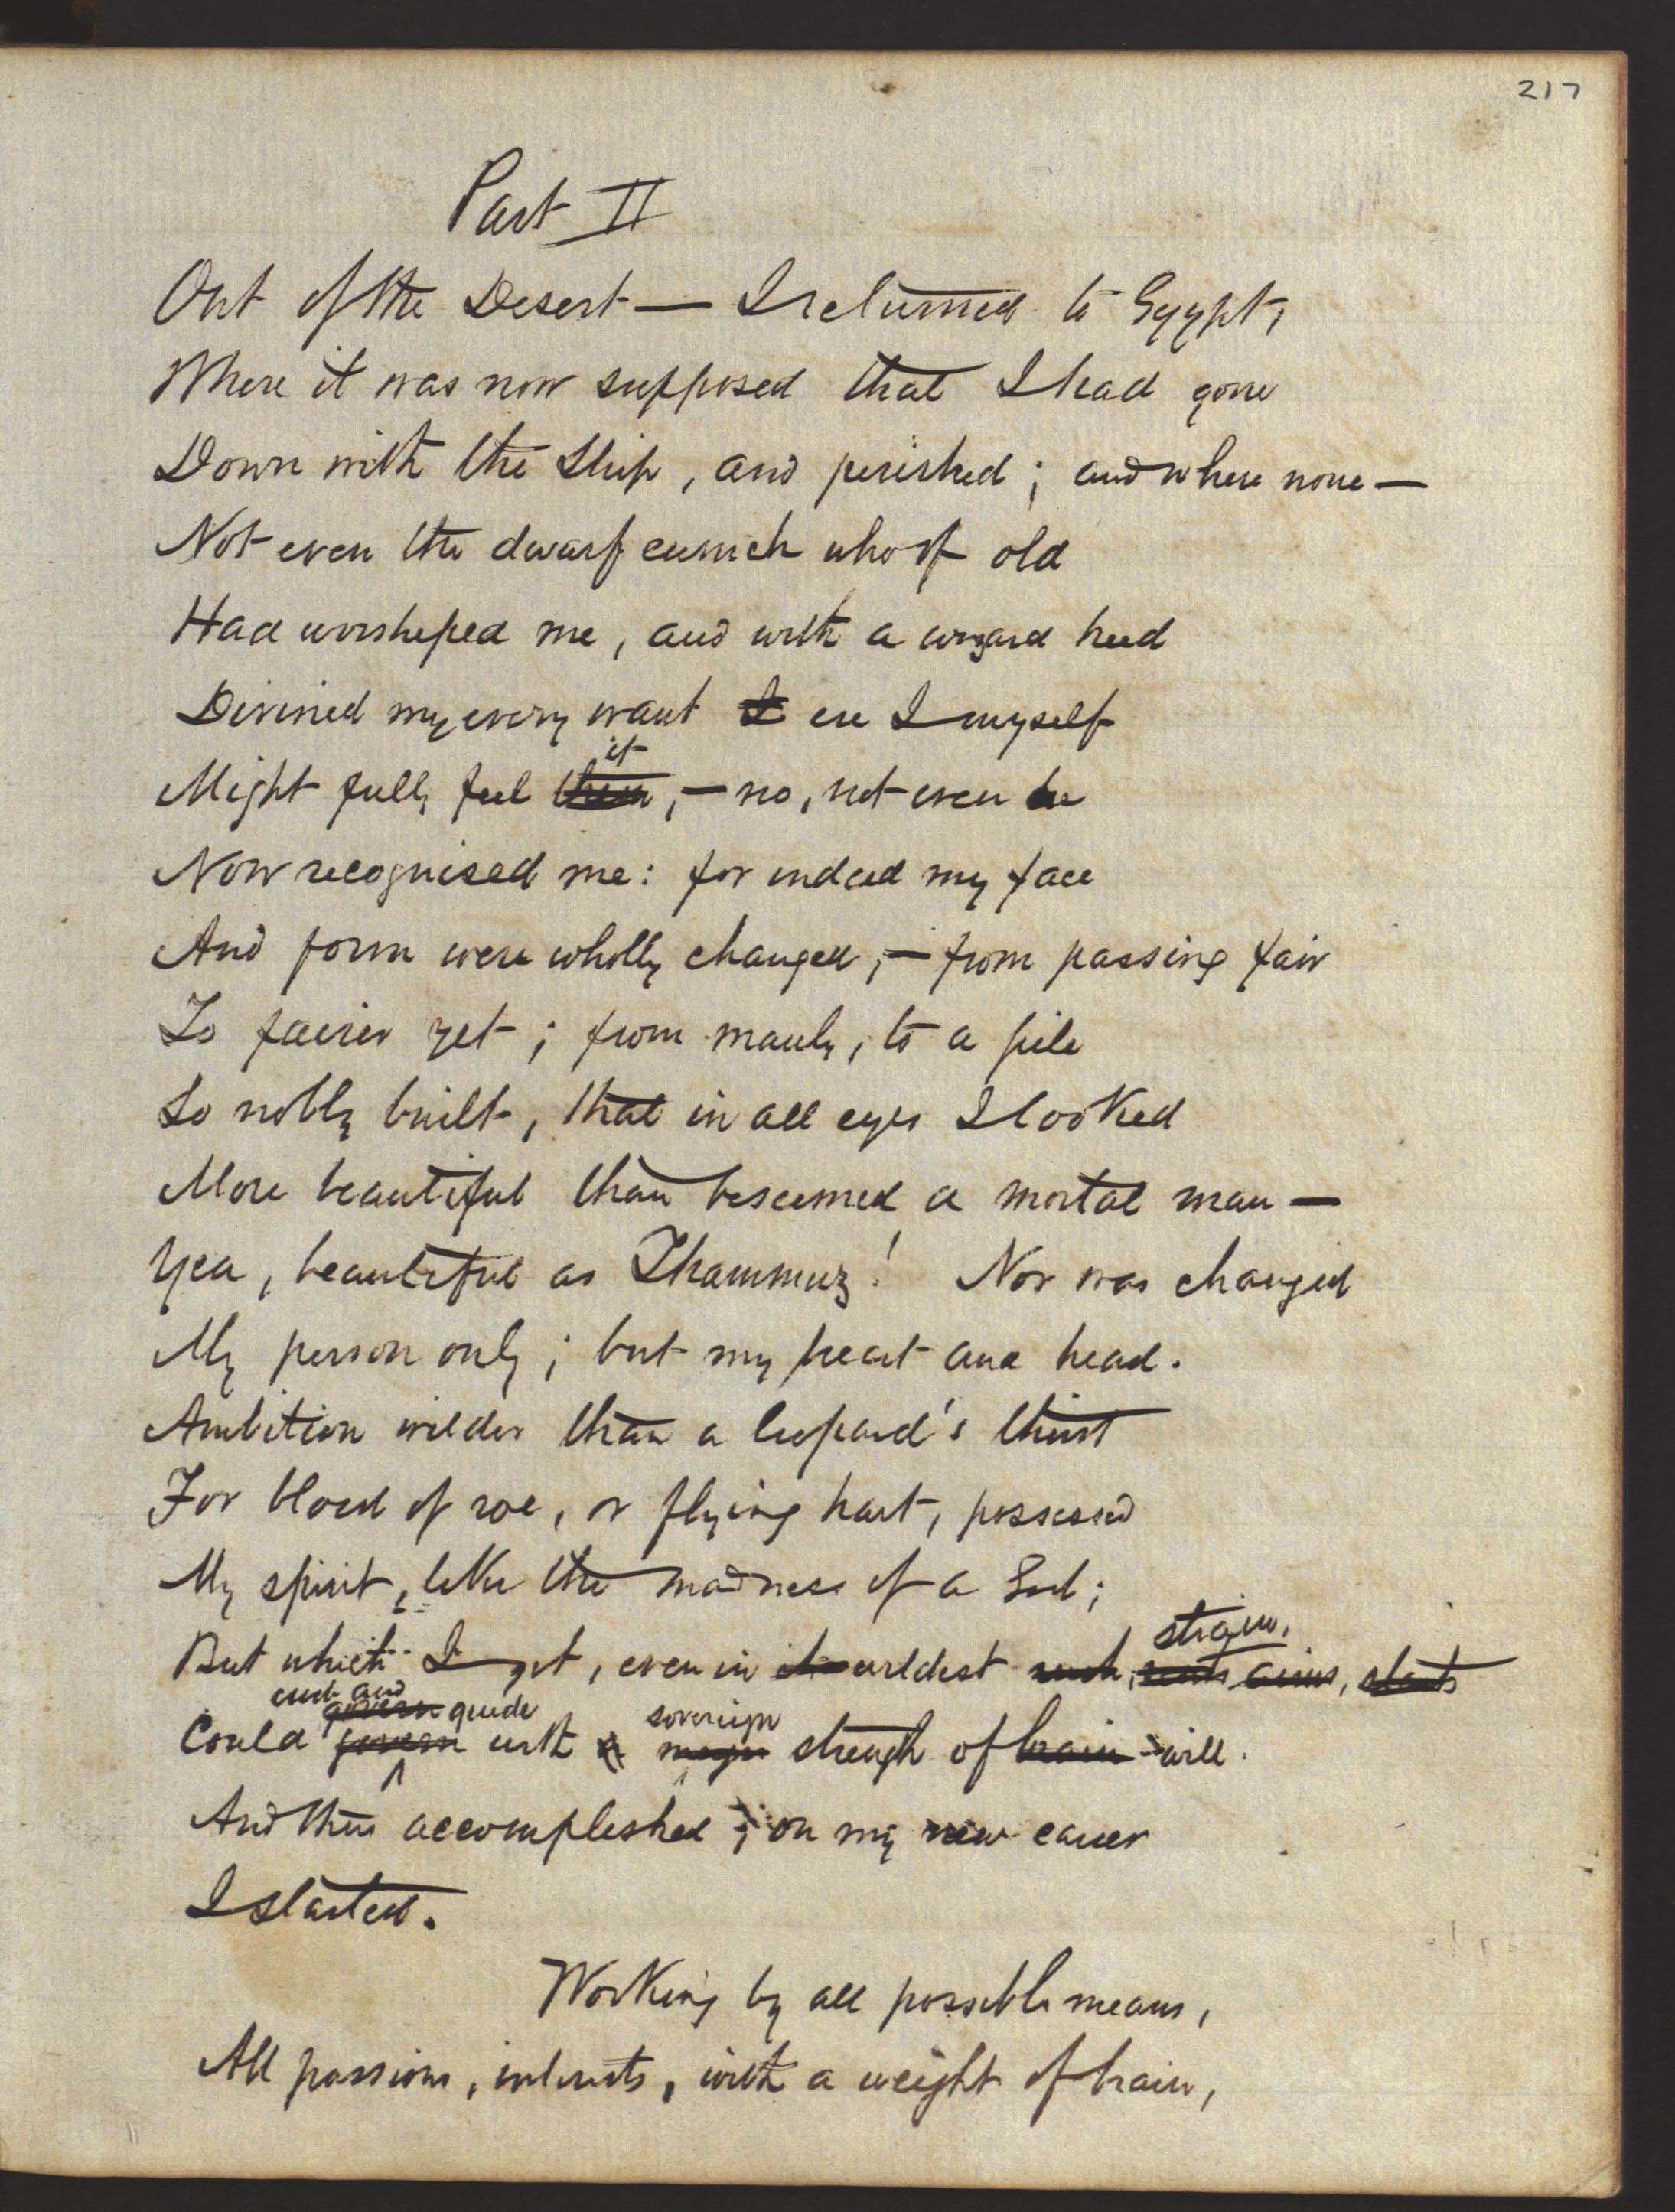 217
Part II
Out of the Desert — I returned to Egypt,
Where it was now supposed that I had gone
Down with the Ship, and perished; and where none —
Not even the dwarf eunuch who of old
Had worshiped me, and with a wizard heed
Divined my every want I ere I myself
it
Might fully feel them, — no, not even he
Now recognised me: for indeed my face
And form were wholly changed, — from passing fair
To fairer yet; from manly, to a pile
So nobly built, that in all eyes I looked
More beautiful than beseemed a mortal man —
Yea, beautiful as Thammuz! Nor was changed
My person only; but my heart and head.
Ambition wilder than a leopard's thirst
For blood of roe, or flying hart, possessed
My spirit, like the madness of a God;
strain,
But which I yet, even in its wildest aims, starts
curb and
govern guide sovereign
Could govern with a strength of brain will.
And thus accomplished, on my new career
I started.
Working by all possible means,
All passions, interests, with a weight of brain,